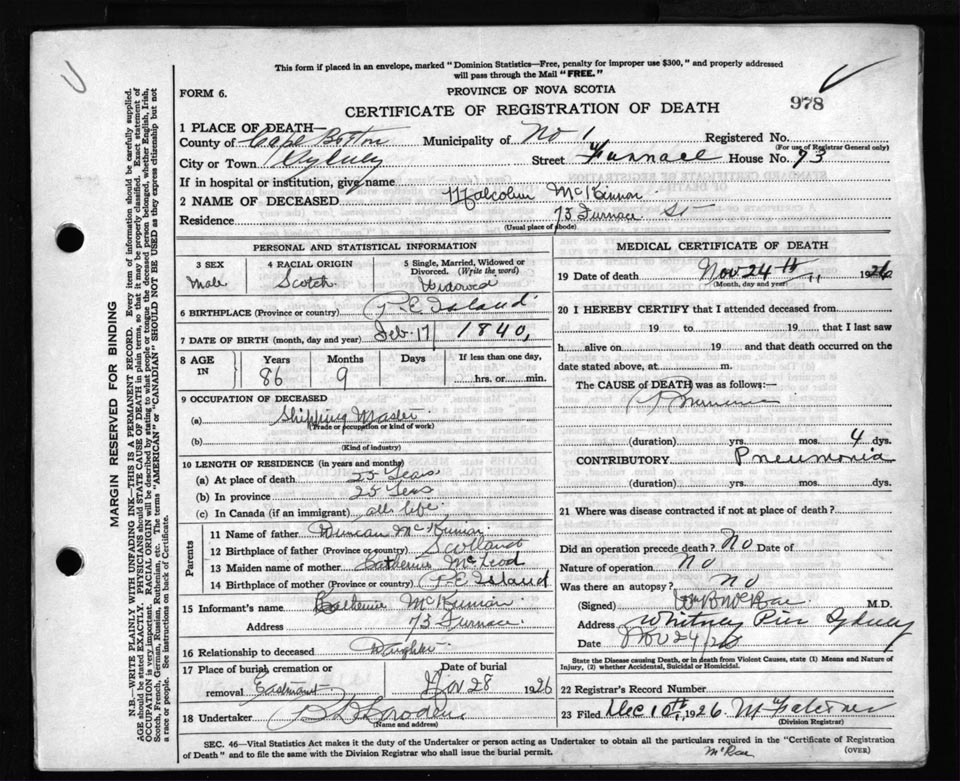 This form if placed in an envelope, marked "Dominion Statistics—Free, penalty for improper use $300," and properly addressed
will pass through the Mail "FREE."
FORM 6.
PROVINCE OF NOVA SCOTIA
CERTIFICATE OF REGISTRATION OF DEATH
978
1 PLACE OF DEATH—
County of Cape Breton Municipality of No 1 Registered No.
(For use of Registrar General only)
City or Town Sydney Street Furnace House No. 73
If in hospital or institution, give name
2 NAME OF DECEASED Malcolm McKinnon
Residence 73 Furnace St
(Usual place of abode)
PERSONAL AND STATISTICAL INFORMATION
3 SEX
Male
4 RACIAL ORIGIN
Scotch
5 Single, Married, Widowed or
Divorced. (Write the word)
Widowed
6 BIRTHPLACE (Province or country) P.E. Island
7 DATE OF BIRTH (month, day and year) Feb. 17/ 1840,
8 AGE
IN
Years
86
Months
9
Days
If less than one day,
hrs. or min.
9 OCCUPATION OF DECEASED
(a) Shipping Master
(Trade or occupation or kind of work)
(b)
(Kind of industry)
10 LENGTH OF RESIDENCE (in years and months)
(a) At place of death 25 Years
(b) In province 25
(c) In Canada (if an immigrant) all life
Parents
11 Name of father Duncan McKinnon
12 Birthplace of father (Province or country) Scotland
13 Maiden name of mother Catherine McLeod
14 Birthplace of mother (Province or country) P.E. Island
15 Informant's name Katherine McKinnon
Address 73 Furnace
16 Relationship to deceased Daughter
17 Place of burial, cremation or
removal
Date of burial
Nov 28 1926
18 Undertaker
(Name and address)
MEDICAL CERTIFICATE OF DEATH
19 Date of death Nov 24th 1926
(Month, day and year)
20 I HEREBY CERTIFY that I attended deceased from
19 to 19 that I last saw
h alive on 19 and that death occurred on the
date stated above, at m.
The CAUSE of DEATH was as follows:—
(duration) yrs. mos. 4 dys.
CONTRIBUTORY Pneumonia
(duration) yrs. mos. dys.
21 Where was disease contracted if not at place of death?
Did an operation precede death? No Date of
Nature of operation No
Was there an autopsy? No
(Signed) McRae M.D.
Address Whitney Pier Sydney
Date Nov 24/26
State the Disease causing Death, or in death from Violent Causes, state (1) Means and Nature of
Injury, (2) whether Accidental, Suicidal or Homicidal.
22 Registrar's Record Number
23 Filed Dec 10th, 1926
(Division Registrar)
SEC. 46—Vital Statistics Act makes it the duty of the Undertaker or person acting as Undertaker to obtain all the particulars required in the "Certificate of Registration
of Death" and to file the same with the Division Registrar who shall issue the burial permit.
McRae
(OVER)
MARGIN RESERVED FOR BINDING
N.B.—WRITE PLAINLY WITH UNFADING INK—THIS IS A PERMANENT RECORD. Every item of information should be carefully supplied.
AGE should be stated EXACTLY. PHYSICIANS should STATE CAUSE OF DEATH in plain terms, so that it may be properly classified. Exact statement of
OCCUPATION is very important. RACIAL ORIGIN will be described by stating to what people or tongue the deceased person belonged, whether English, Irish,
Scotch, French, German, Russian, Ruthenian, etc. The terms "AMERICAN" or "CANADIAN" SHOULD NOT BE USED as they express citizenship but not
a race or people. See instructions on back of Certificate.